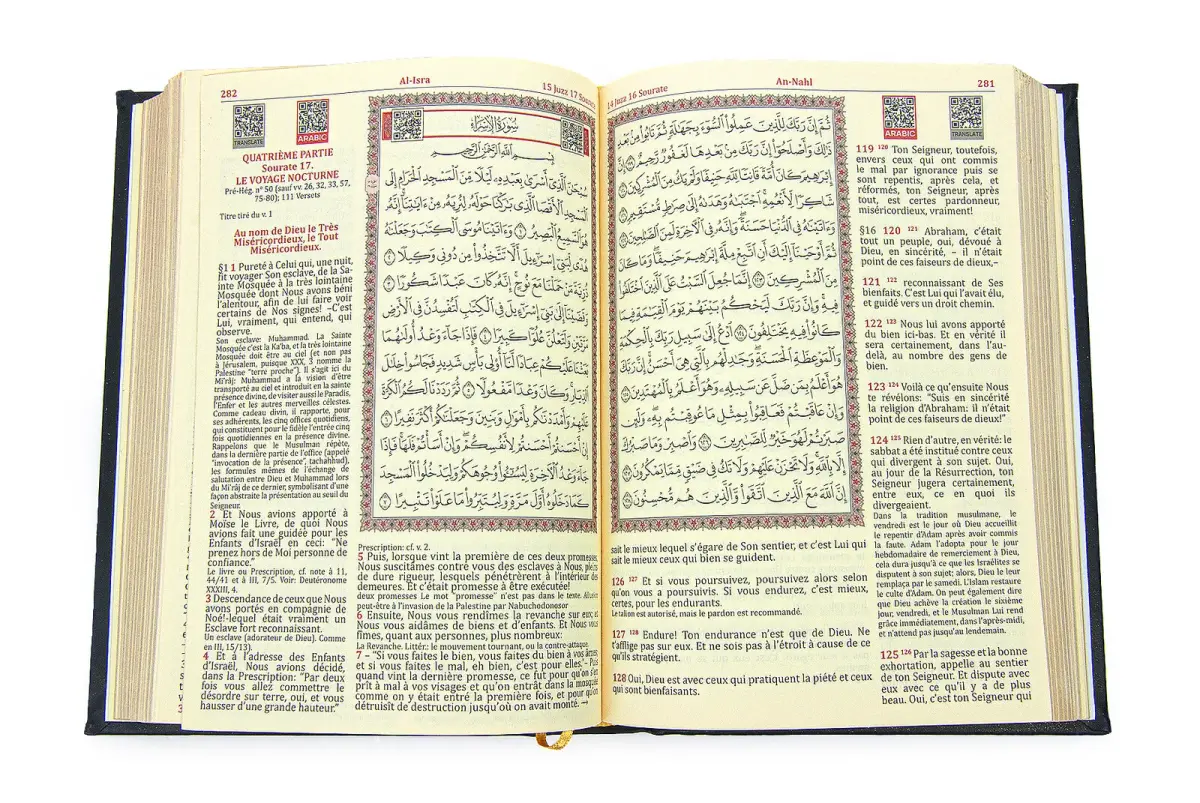 An-Nahl 281
14 Juzz 16 Sourate
ثُمَّ إِنَّ رَبَّكَ لِلَّذِينَ عَمِلُواْ ٱلسُّوٓءَ بِجَهَٰلَةٖ ثُمَّ تَابُواْ مِنۢ بَعۡدِ
ذَٰلِكَ وَأَصۡلَحُوٓاْ إِنَّ رَبَّكَ مِنۢ بَعۡدِهَا لَغَفُورٞ رَّحِيمٌ ١١٩ إِنَّ
إِبۡرَٰهِيمَ كَانَ أُمَّةٗ قَانِتٗا لِّلَّهِ حَنِيفٗا وَلَمۡ يَكُ مِنَ ٱلۡمُشۡرِكِينَ ١٢٠
شَاكِرٗا لِّأَنۡعُمِهِۚ ٱجۡتَبَىٰهُ وَهَدَىٰهُ إِلَىٰ صِرَٰطٖ مُّسۡتَقِيمٖ ١٢١
وَءَاتَيۡنَٰهُ فِي ٱلدُّنۡيَا حَسَنَةٗۖ وَإِنَّهُۥ فِي ٱلۡأٓخِرَةِ لَمِنَ ٱلصَّٰلِحِينَ ١٢٢
ثُمَّ أَوۡحَيۡنَآ إِلَيۡكَ أَنِ ٱتَّبِعۡ مِلَّةَ إِبۡرَٰهِيمَ حَنِيفٗاۖ وَمَا كَانَ
مِنَ ٱلۡمُشۡرِكِينَ ١٢٣ إِنَّمَا جُعِلَ ٱلسَّبۡتُ عَلَى ٱلَّذِينَ ٱخۡتَلَفُواْ
فِيهِۚ وَإِنَّ رَبَّكَ لَيَحۡكُمُ بَيۡنَهُمۡ يَوۡمَ ٱلۡقِيَٰمَةِ فِيمَا
كَانُواْ فِيهِ يَخۡتَلِفُونَ ١٢٤ ٱدۡعُ إِلَىٰ سَبِيلِ رَبِّكَ بِٱلۡحِكۡمَةِ
وَٱلۡمَوۡعِظَةِ ٱلۡحَسَنَةِۖ وَجَٰدِلۡهُم بِٱلَّتِي هِيَ أَحۡسَنُۚ إِنَّ رَبَّكَ
هُوَ أَعۡلَمُ بِمَن ضَلَّ عَن سَبِيلِهِۦ وَهُوَ أَعۡلَمُ بِٱلۡمُهۡتَدِينَ ١٢٥
وَإِنۡ عَاقَبۡتُمۡ فَعَاقِبُواْ بِمِثۡلِ مَا عُوقِبۡتُم بِهِۦۖ وَلَئِن
صَبَرۡتُمۡ لَهُوَ خَيۡرٞ لِّلصَّٰبِرِينَ ١٢٦ وَٱصۡبِرۡ وَمَا صَبۡرُكَ
إِلَّا بِٱللَّهِۚ وَلَا تَحۡزَنۡ عَلَيۡهِمۡ وَلَا تَكُ فِي ضَيۡقٖ مِّمَّا يَمۡكُرُونَ ١٢٧
إِنَّ ٱللَّهَ مَعَ ٱلَّذِينَ ٱتَّقَواْ وَّٱلَّذِينَ هُم مُّحۡسِنُونَ ١٢٨
ARABIC TRANSLATE
119 120 Ton Seigneur, toutefois,
envers ceux qui ont commis
le mal par ignorance puis se
sont repentis, après cela, et
réformés, ton Seigneur, après
tout, est certes pardonneur,
miséricordieux, vraiment!
§16 120 121 Abraham, c'était
tout un peuple, oui, dévoué à
Dieu, en sincérité, – il n'était
point de ces faiseurs de dieux,–
121 122 reconnaissant de Ses
bienfaits. C'est Lui qui l'avait élu,
et guidé vers un droit chemin.
122 123 Nous lui avons apporté
du bien ici-bas. Et en vérité il
sera certainement, dans l'au-
delà, au nombre des gens de
bien.
123 124 Voilà ce qu'ensuite Nous
te révélons: "Suis en sincérité
la religion d'Abraham: il n'était
point de ces faiseurs de dieux!"
124 125 Rien d'autre, en vérité: le
sabbat a été institué contre ceux
qui divergent à son sujet. Oui,
au jour de la Résurrection, ton
Seigneur jugera certainement,
entre eux, ce en quoi ils
divergeaient.
Dans la tradition musulmane, le
vendredi est le jour où Dieu accueillit
le repentir d'Adam après avoir commis
la faute. Adam l'adopta pour le jour
hebdomadaire de remerciement à Dieu,
cela dura jusqu'à ce que les Israélites se
disputent à son sujet; alors, Dieu le leur
remplaça par le samedi. L'Islam restaure
le culte d'Adam. On peut également dire
que Dieu achève la création le sixième
jour, vendredi, et le Musulman Lui rend
grâce immédiatement, dans l'après-midi,
et n'attend pas jusqu'au lendemain.
125 126 Par la sagesse et la bonne
exhortation, appelle au sentier
de ton Seigneur. Et dispute avec
eux avec ce qu'il y a de plus
beau. Oui, c'est ton Seigneur qui
sait le mieux lequel s'égare de Son sentier, et c'est Lui qui
sait le mieux ceux qui bien se guident.
126 127 Et si vous poursuivez, poursuivez alors selon
qu'on vous a poursuivis. Si vous endurez, c'est mieux,
certes, pour les endurants.
Le talion est autorisé, mais le pardon est recommandé.
127 128 Endure! Ton endurance n'est que de Dieu. Ne
t'afflige pas sur eux. Et ne sois pas à l'étroit à cause de ce
qu'ils stratégient.
128 Oui, Dieu est avec ceux qui pratiquent la piété et ceux
qui sont bienfaisants.
282 Al-Isra
15 Juzz 17 Sourate
سُورَةُ الإِسۡرَاءِ
بِسۡمِ ٱللَّهِ ٱلرَّحۡمَٰنِ ٱلرَّحِيمِ
سُبۡحَٰنَ ٱلَّذِيٓ أَسۡرَىٰ بِعَبۡدِهِۦ لَيۡلٗا مِّنَ ٱلۡمَسۡجِدِ ٱلۡحَرَامِ إِلَى
ٱلۡمَسۡجِدِ ٱلۡأَقۡصَا ٱلَّذِي بَٰرَكۡنَا حَوۡلَهُۥ لِنُرِيَهُۥ مِنۡ ءَايَٰتِنَآۚ إِنَّهُۥ
هُوَ ٱلسَّمِيعُ ٱلۡبَصِيرُ ١ وَءَاتَيۡنَا مُوسَى ٱلۡكِتَٰبَ وَجَعَلۡنَٰهُ
هُدٗى لِّبَنِيٓ إِسۡرَٰٓءِيلَ أَلَّا تَتَّخِذُواْ مِن دُونِي وَكِيلٗا ٢
ذُرِّيَّةَ مَنۡ حَمَلۡنَا مَعَ نُوحٍۚ إِنَّهُۥ كَانَ عَبۡدٗا شَكُورٗا ٣
وَقَضَيۡنَآ إِلَىٰ بَنِيٓ إِسۡرَٰٓءِيلَ فِي ٱلۡكِتَٰبِ لَتُفۡسِدُنَّ فِي ٱلۡأَرۡضِ
مَرَّتَيۡنِ وَلَتَعۡلُنَّ عُلُوّٗا كَبِيرٗا ٤ فَإِذَا جَآءَ وَعۡدُ أُولَىٰهُمَا
بَعَثۡنَا عَلَيۡكُمۡ عِبَادٗا لَّنَآ أُوْلِي بَأۡسٖ شَدِيدٖ فَجَاسُواْ خِلَٰلَ
ٱلدِّيَارِۚ وَكَانَ وَعۡدٗا مَّفۡعُولٗا ٥ ثُمَّ رَدَدۡنَا لَكُمُ ٱلۡكَرَّةَ
عَلَيۡهِمۡ وَأَمۡدَدۡنَٰكُم بِأَمۡوَٰلٖ وَبَنِينَ وَجَعَلۡنَٰكُمۡ أَكۡثَرَ نَفِيرًا ٦
إِنۡ أَحۡسَنتُمۡ أَحۡسَنتُمۡ لِأَنفُسِكُمۡۖ وَإِنۡ أَسَأۡتُمۡ فَلَهَاۚ فَإِذَا
جَآءَ وَعۡدُ ٱلۡأٓخِرَةِ لِيَسُـُٔواْ وُجُوهَكُمۡ وَلِيَدۡخُلُواْ ٱلۡمَسۡجِدَ
كَمَا دَخَلُوهُ أَوَّلَ مَرَّةٖ وَلِيُتَبِّرُواْ مَا عَلَوۡاْ تَتۡبِيرًا ٧
TRANSLATE ARABIC
QUATRIÈME PARTIE
Sourate 17.
LE VOYAGE NOCTURNE
Pré-Hég. n° 50 (sauf vv. 26, 32, 33, 57,
75-80); 111 Versets
Titre tiré du v. 1
Au nom de Dieu le Très
Miséricordieux, le Tout
Miséricordieux.
§1 1 Pureté à Celui qui, une nuit,
fit voyager Son esclave, de la Sa-
inte Mosquée à la très lointaine
Mosquée dont Nous avons béni
l'alentour, afin de lui faire voir
certains de Nos signes! –C'est
Lui, vraiment, qui entend, qui
observe.
Son esclave: Muhammad. La Sainte
Mosquée c'est la Ka'ba, et la très lointaine
Mosquée doit être au ciel (et non pas
à Jérusalem, puisque XXX, 3 nomme la
Palestine "terre proche"). Il s'agit ici du
Mi'râj: Muhammad a la vision d'être
transporté au ciel et introduit en la sainte
présence divine, de visiter aussi le Paradis,
l'Enfer et les autres merveilles célestes.
Comme cadeau divin, il rapporte, pour
ses adhérents, les cinq offices quotidiens,
qui constituent pour le fidèle l'entrée cinq
fois quotidiennes en la présence divine.
Rappelons que le Musulman répète,
dans la dernière partie de l'office (appelé
"invocation de la présence", tachahhud),
les formules mêmes de l'échange de
salutation entre Dieu et Muhammad lors
du Mi'râj de ce dernier, symbolisant d'une
façon abstraite la présentation au seuil du
Seigneur.
2 Et Nous avons apporté à
Moïse le Livre, de quoi Nous
avons fait une guidée pour les
Enfants d'Israël en ceci: "Ne
prenez hors de Moi personne de
confiance."
Le livre ou Prescription, cf. note à 11,
44/41 et à III, 7/5. Voir: Deutéronome
XXXIII, 4.
3 Descendance de ceux que Nous
avons portés en compagnie de
Noé!-lequel était vraiment un
Esclave fort reconnaissant.
Un esclave (adorateur de Dieu). Comme
en III, 15/13).
4 Et à l'adresse des Enfants
d'Israël, Nous avions décidé,
dans la Prescription: "Par deux
fois vous allez commettre le
désordre sur terre, oui, et vous
hausser d'une grande hauteur."
Prescription: cf. v. 2.
5 Puis, lorsque vint la première de ces deux promesses,
Nous suscitâmes contre vous des esclaves à Nous, pleins
de dure rigueur, lesquels pénétrèrent à l'intérieur des
demeures. Et c'était promesse à être exécutée!
deux promesses Le mot "promesse" n'est pas dans le texte. Allusion
peut-être à l'invasion de la Palestine par Nabuchodonosor
6 Ensuite, Nous vous rendîmes la revanche sur eux; et
Nous vous aidâmes de biens et d'enfants. Et Nous vous
fîmes, quant aux personnes, plus nombreux:
La Revanche. Littér.: le mouvement tournant, ou la contre-attaque.
7 – "Si vous faites le bien, vous faites du bien à vos âmes,
et si vous faites le mal, eh bien, c'est pour elles."– Puis
quand vint la dernière promesse, ce fut pour qu'on s'en
prît à mal à vos visages et qu'on entrât dans la mosquée
comme on y était entré la première fois, et pour qu'on
détruisît de destruction jusqu'où on avait monté. →